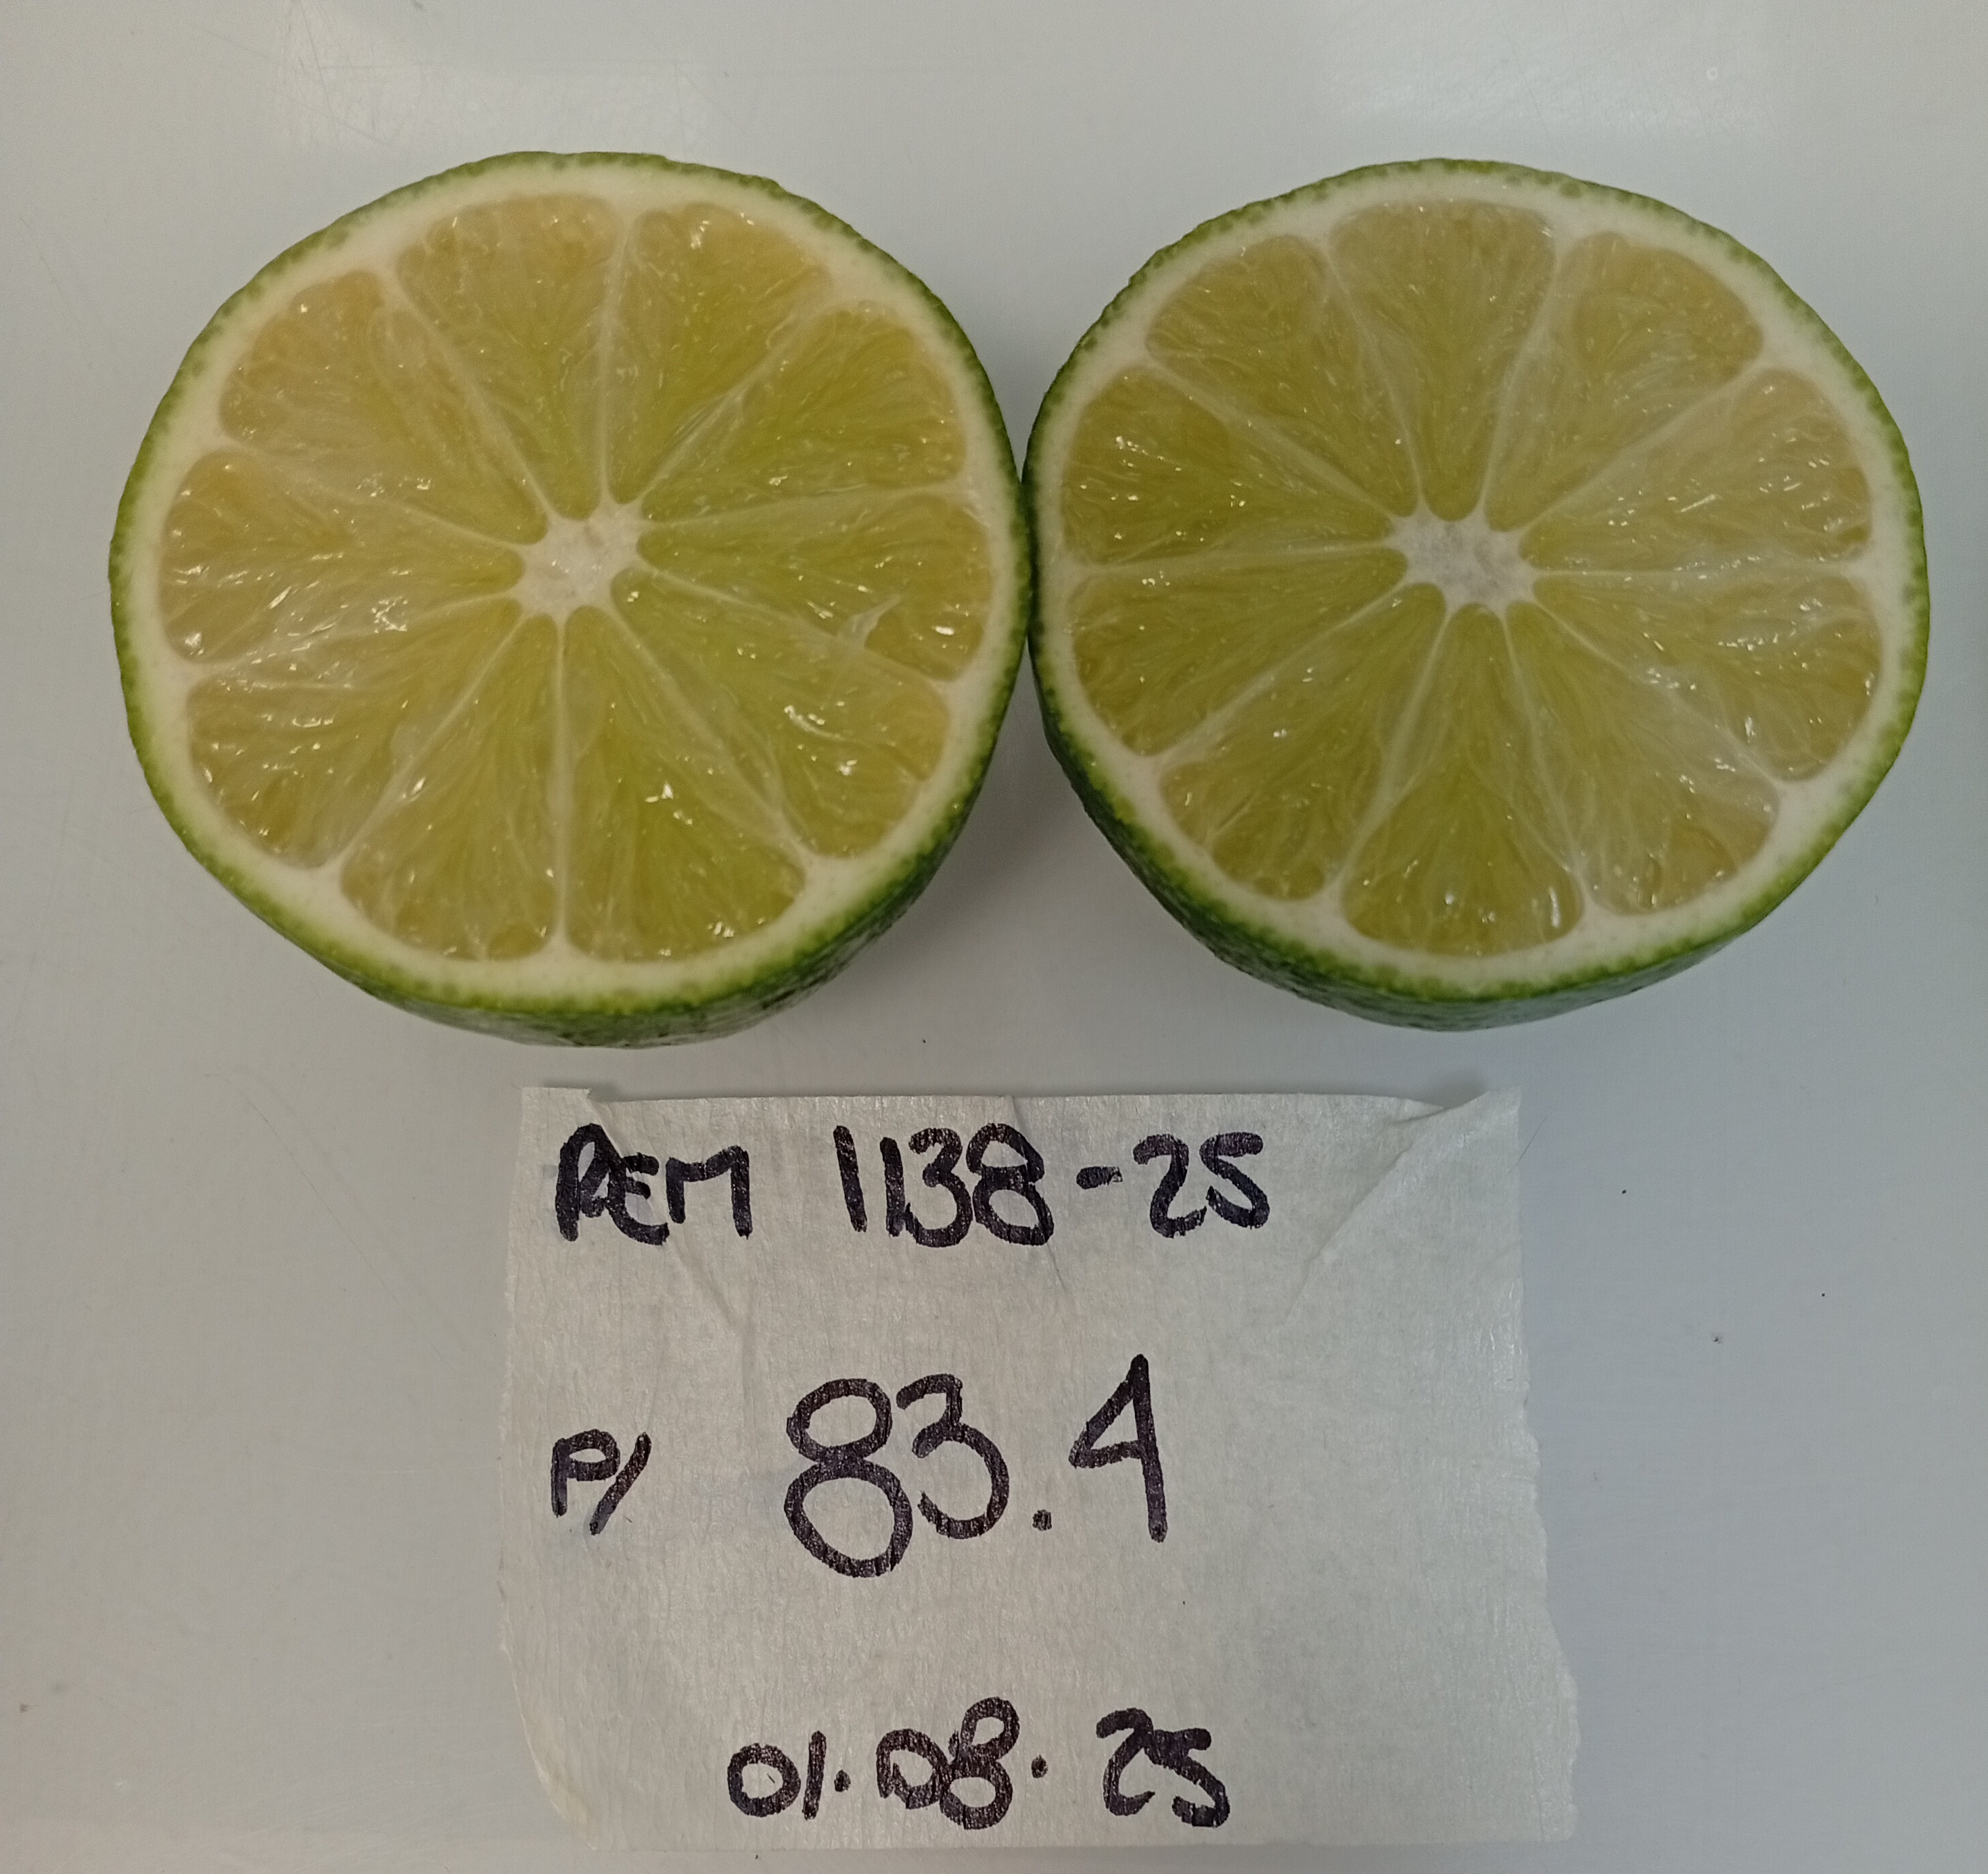 REM 1138-25
P/ 83.4
01.08.25